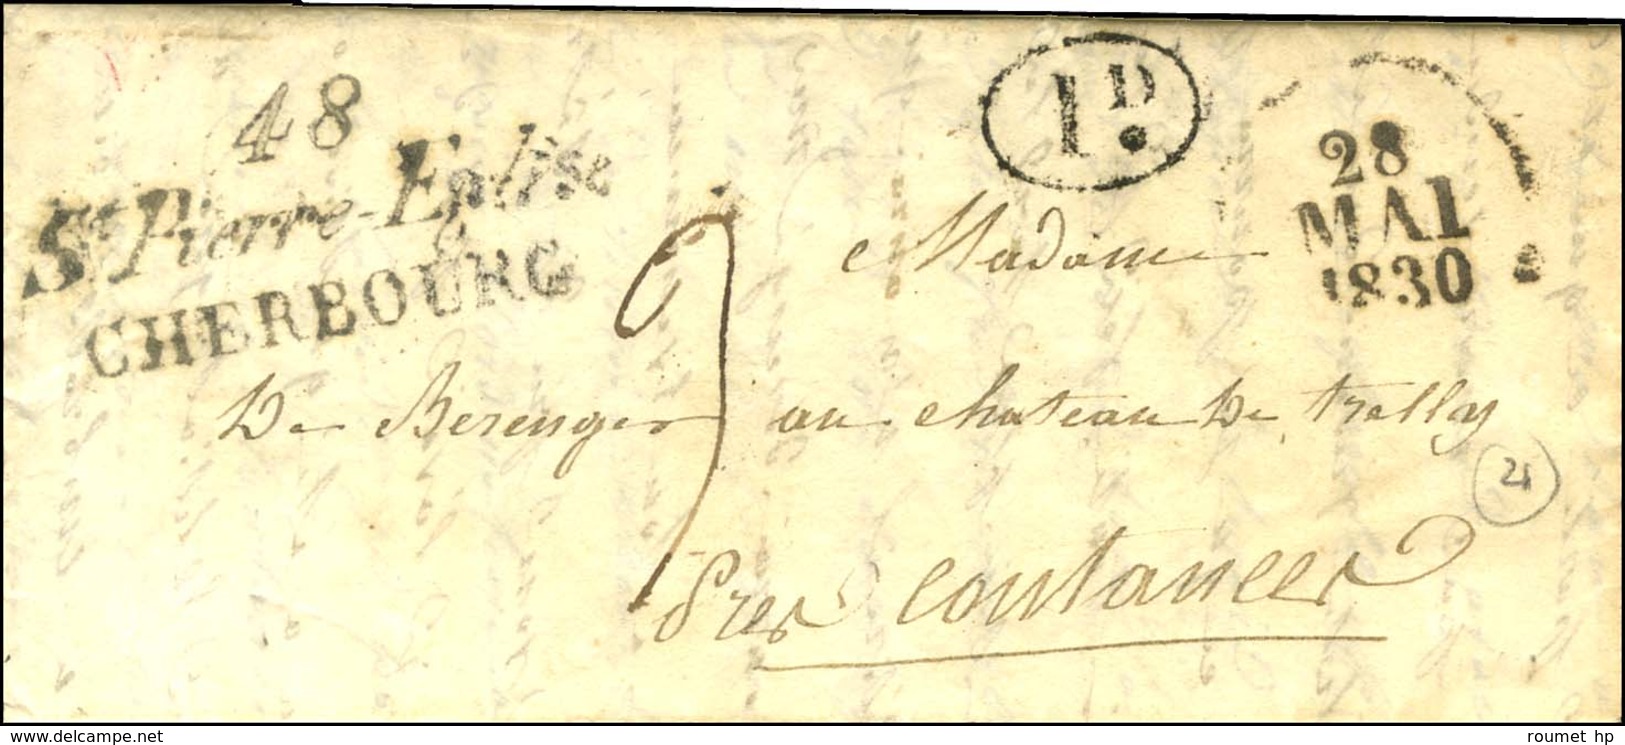 48
St Pierre-Eglise
CHERBOURG
1D.
28
MAI
1830
Madame
De Berenger au chateau De trelly
21
Pres Coutances
www.delcampe.net
roumet hp